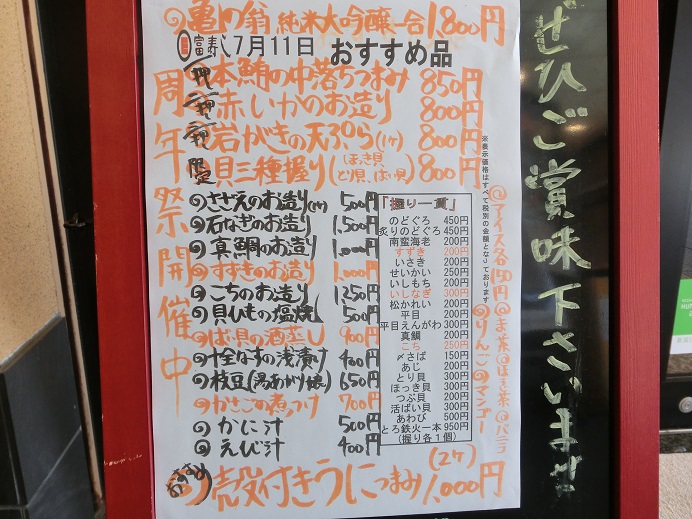 の亀の翁 純米大吟醸一合 1,800円
富寿し 7月11日 おすすめ品
周年祭開催中
一押 本鮪の中落ちつまみ 850円
二押 赤いかのお造り 800円
岩がきの天ぷら(1ヶ) 800円
限定 貝三種握り(ほっき貝、とり貝、ばい貝) 800円
のさざえのお造り(1ヶ) 500円
の石なぎのお造り 1,500円
の真鯛のお造り 1,000円
のすずきのお造り 1,000円
のこちのお造り 1,250円
の貝ひもの塩焼 500円
のばい貝の酒蒸し 900円
の十全なすの浅漬け 400円
の枝豆(湯あがり娘) 650円
のかさごの煮つけ 700円
のかに汁 500円
のえび汁 400円
おすすめ 殻付きうにつまみ(2ヶ) 1,000円
「握り一貫」
のどぐろ 450円
炙りのどぐろ 450円
南蛮海老 200円
すずき 200円
いさき 200円
せいかい 250円
いしもち 200円
いしなぎ 300円
松かれい 200円
平目 200円
平目えんがわ 300円
真鯛 200円
こち 250円
〆さば 150円
あじ 200円
とり貝 300円
ほっき貝 300円
つぶ貝 200円
活ばい貝 300円
あわび 500円
とろ鉄火一本 950円
(握り各1個)
※表示価格はすべて税別の金額となっております
@アイス各150円
@まっ茶@ほうじ茶@バニラ
@りんご@マンゴー
ぜひご賞味下さいませ